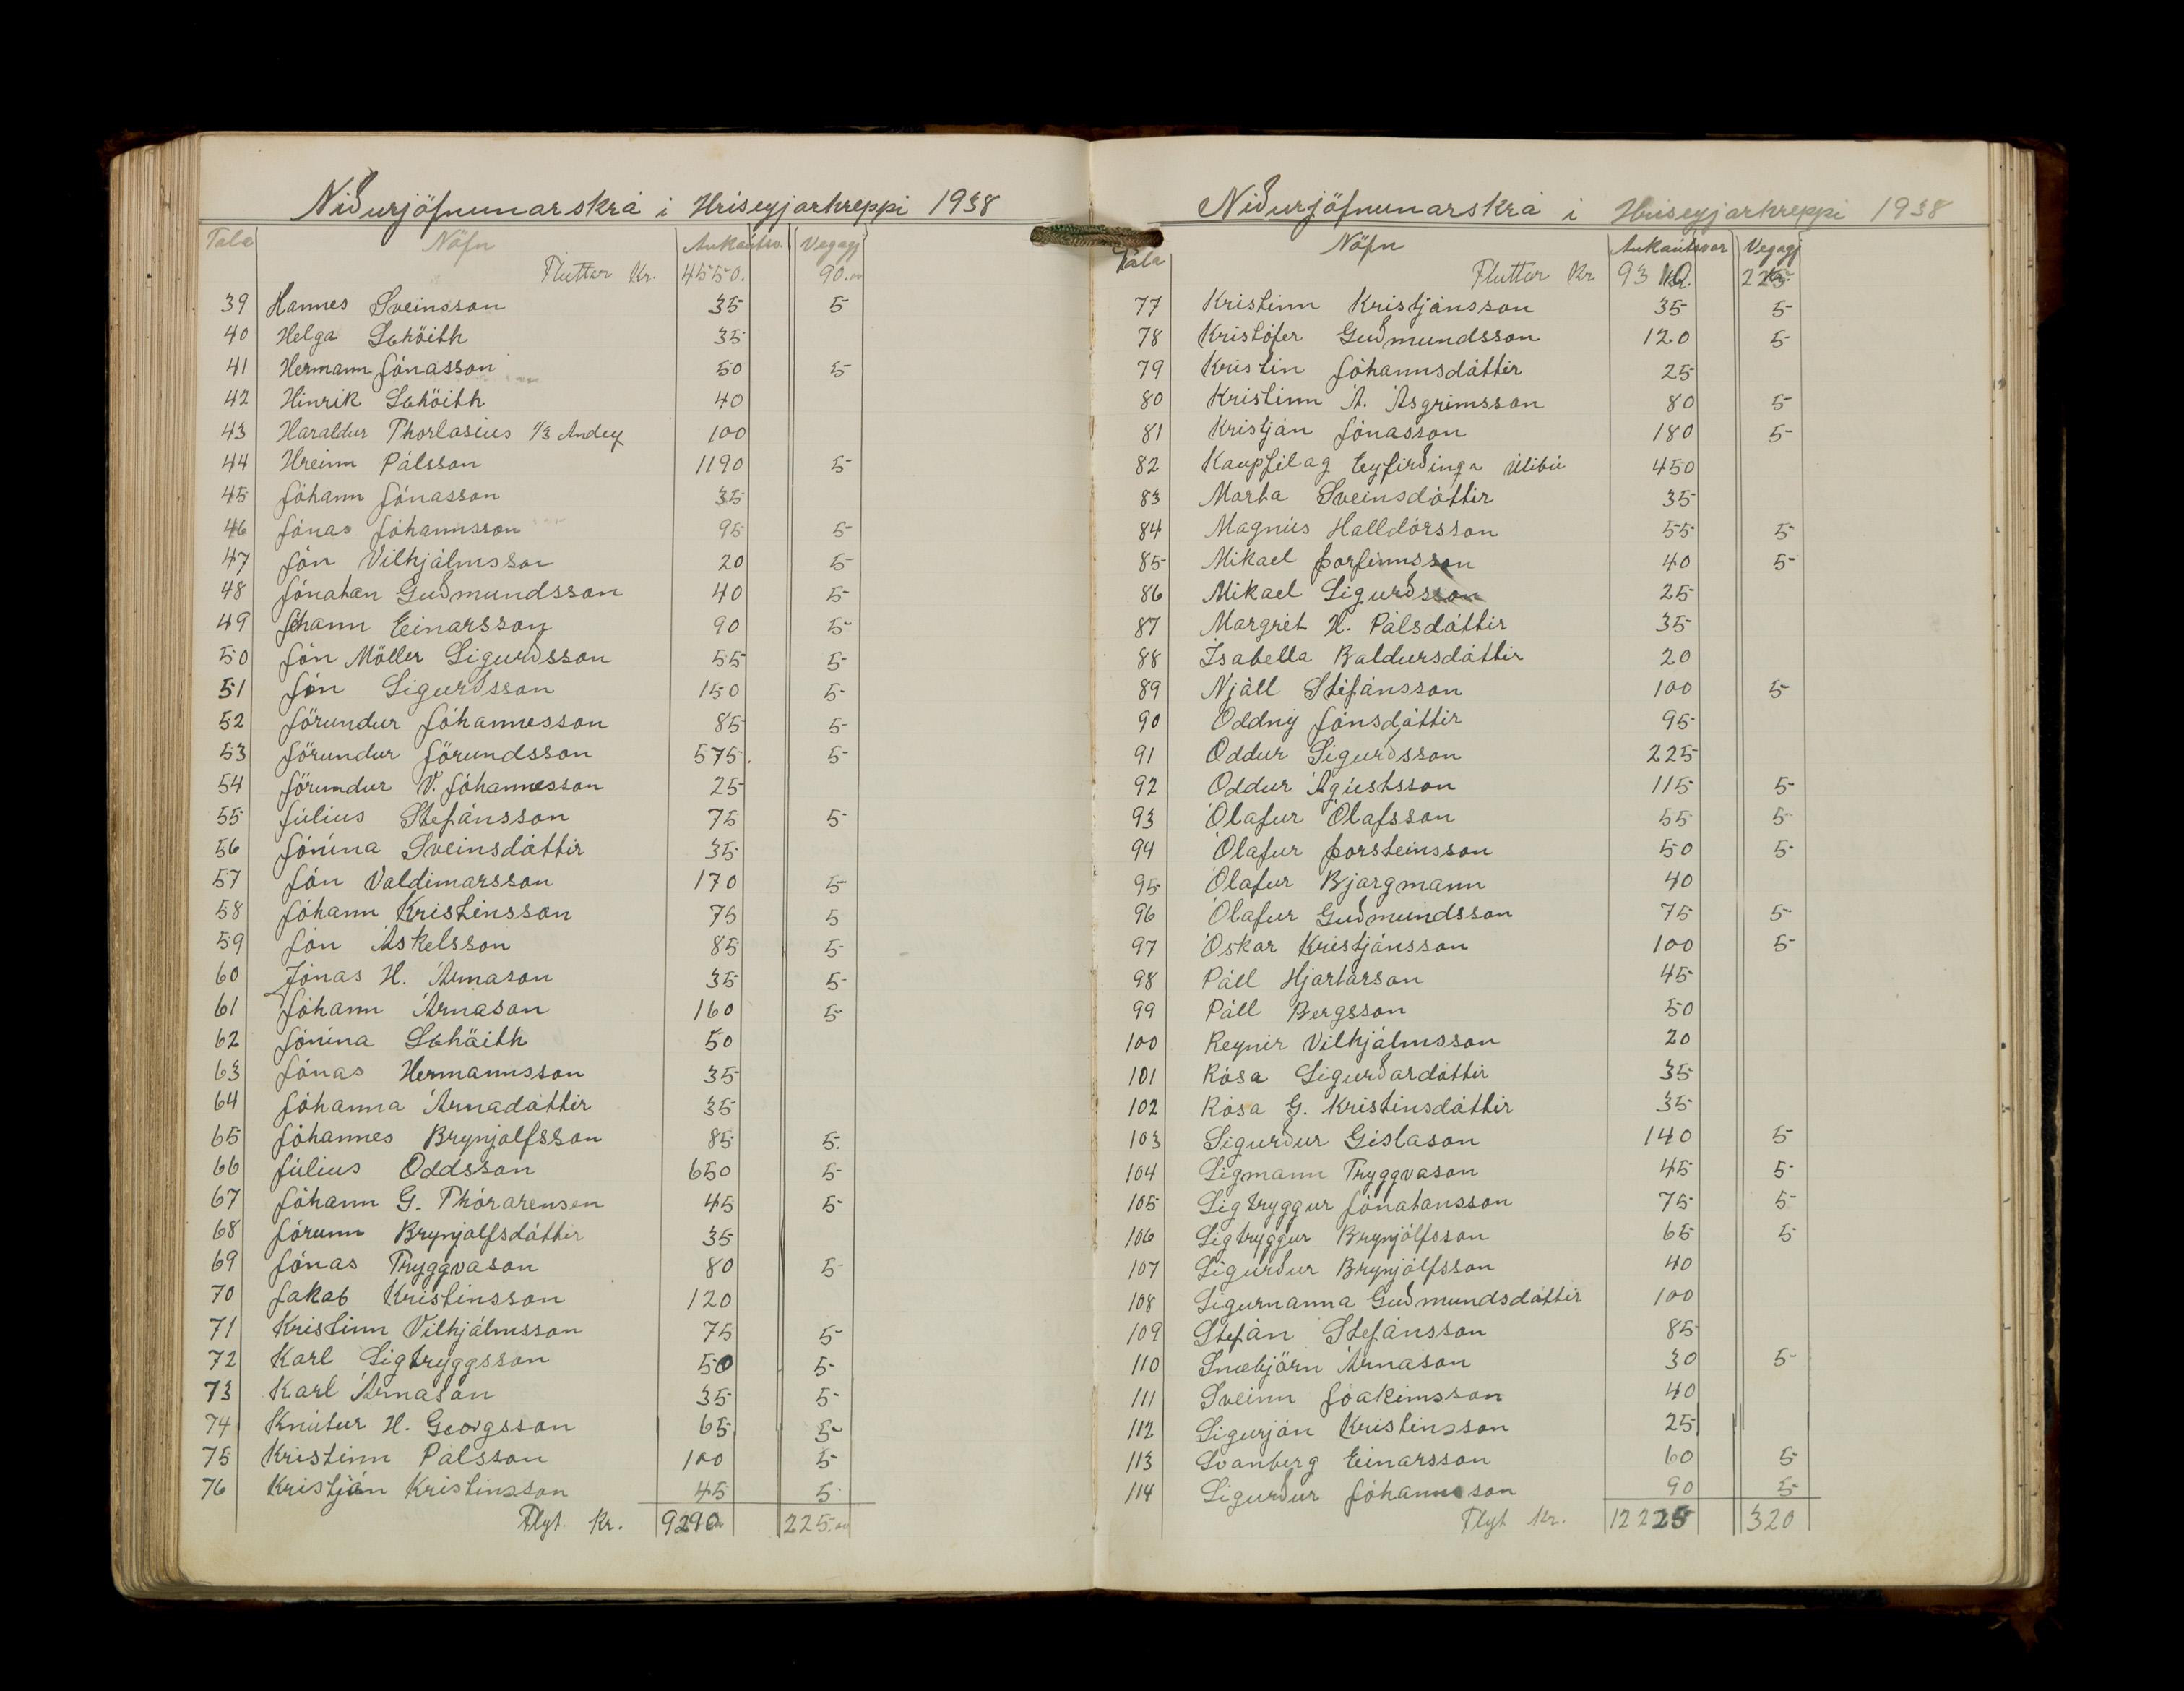 Niðurjöfnunarskrá i Hriseyjarhreppi 1938
Tala Nöfn Aukaútsv. Vegagj
Fluttar Kr. 4550. 90.00
39 Hannes Sveinsson 35 5
40 Helga Schöith 35
41 Hermann Jónasson 50 5
42 Hinrik Schöith 40
43 Haraldur Thorlasius 1/3 Andey 100
44 Hreinn Pálsson 1190 5
45 Jóhann Jónasson 35
46 Jónas Jóhannsson 95 5
47 Jón Vilhjálmsson 20 5
48 Jónatan Guðmundsson 40 5
49 Jóhann Einarsson 90 5
50 Jón Möller Sigurðsson 55 5
51 Jón Sigurðsson 150 5
52 Jörundur Jóhannesson 85 5
53 Jörundur Jörundsson 575. 5
54 Jörundur V. Jóhannesson 25
55 Július Stefánsson 75 5
56 Jónína Sveinsdóttir 35
57 Jón Valdimarsson 170 5
58 Jóhann Kristinsson 75 5
59 Jón Áskelsson 85 5
60 Jónas H. Árnason 35 5
61 Jóhann Árnason 160 5
62 Jónína Schäith 50
63 Jónas Hermannsson 35
64 Jóhanna Árnadóttir 35
65 Jóhannes Brynjolfsson 85 5.
66 Július Oddsson 650 5
67 Jóhann G. Thórarensen 45 5
68 Jórunn Brynjolfsdóttir 35
69 Jónas Tryggvason 80 5
70 Jakob Kristinsson 120
71 Kristinn Vilhjálmsson 75 5
72 Karl Sigtryggsson 50 5
73 Karl Árnason 35 5
74 Knútur H. Georgsson 65 5
75 Kristinn Pálsson 100 5
76 Kristján Kristinsson 45 5
Flyt. Kr. 9290 225.00
Niðurjöfnunarskrá i Hriseyjarhreppi 1938
Tala Nöfn Aukaútsvar Vegagj
Fluttar Kr 225
77 Kristinn Kristjánsson 35 5
78 Kristófer Guðmundsson 120 5
79 Kristin Jóhannsdóttir 25
80 Kristinn Á. Ásgrimsson 80 5
81 Kristján Jónasson 180 5
82 Kaupfélag Eyfirðinga Útibú 450
83 Marta Sveinsdóttir 35
84 Magnús Halldórsson 55 5
85 Mikael Þorfinnsson 40 5
86 Mikael Sigurðsson 25
87 Margrét H. Pálsdóttir 35
88 Ísabella Baldursdóttir 20
89 Njáll Stefánsson 100 5
90 Oddný Jónsdóttir 95
91 Oddur Sigurðsson 225
92 Oddur Ágústsson 115 5
93 Ólafur Ólafsson 55 5
94 Ólafur Þorsteinsson 50 5
95 Ólafur Bjargmann 40
96 Ólafur Guðmundsson 75 5
97 Óskar Kristjánsson 100 5
98 Páll Hjartarson 45
99 Páll Bergsson 50
100 Reynir Vilhjálmsson 20
101 Rósa Sigurðardóttir 35
102 Rósa G. Kristinsdóttir 35
103 Sigurður Gíslason 140 5
104 Sigmann Tryggvason 45 5
105 Sigtryggur Jónatansson 75 5
106 Sigtryggur Brynjólfsson 65 5
107 Sigurður Brynjólfsson 40
108 Sigurnanna Guðmundsdóttir 100
109 Stefán Stefánsson 85
110 Snæbjörn Árnason 30 5
111 Sveinn Jóakimsson 40
112 Sigurjón Kristinsson 25
113 Svanberg Einarsson 60 5
114 Sigurður Jóhannsson 90 5
Flyt Kr. 12225 320